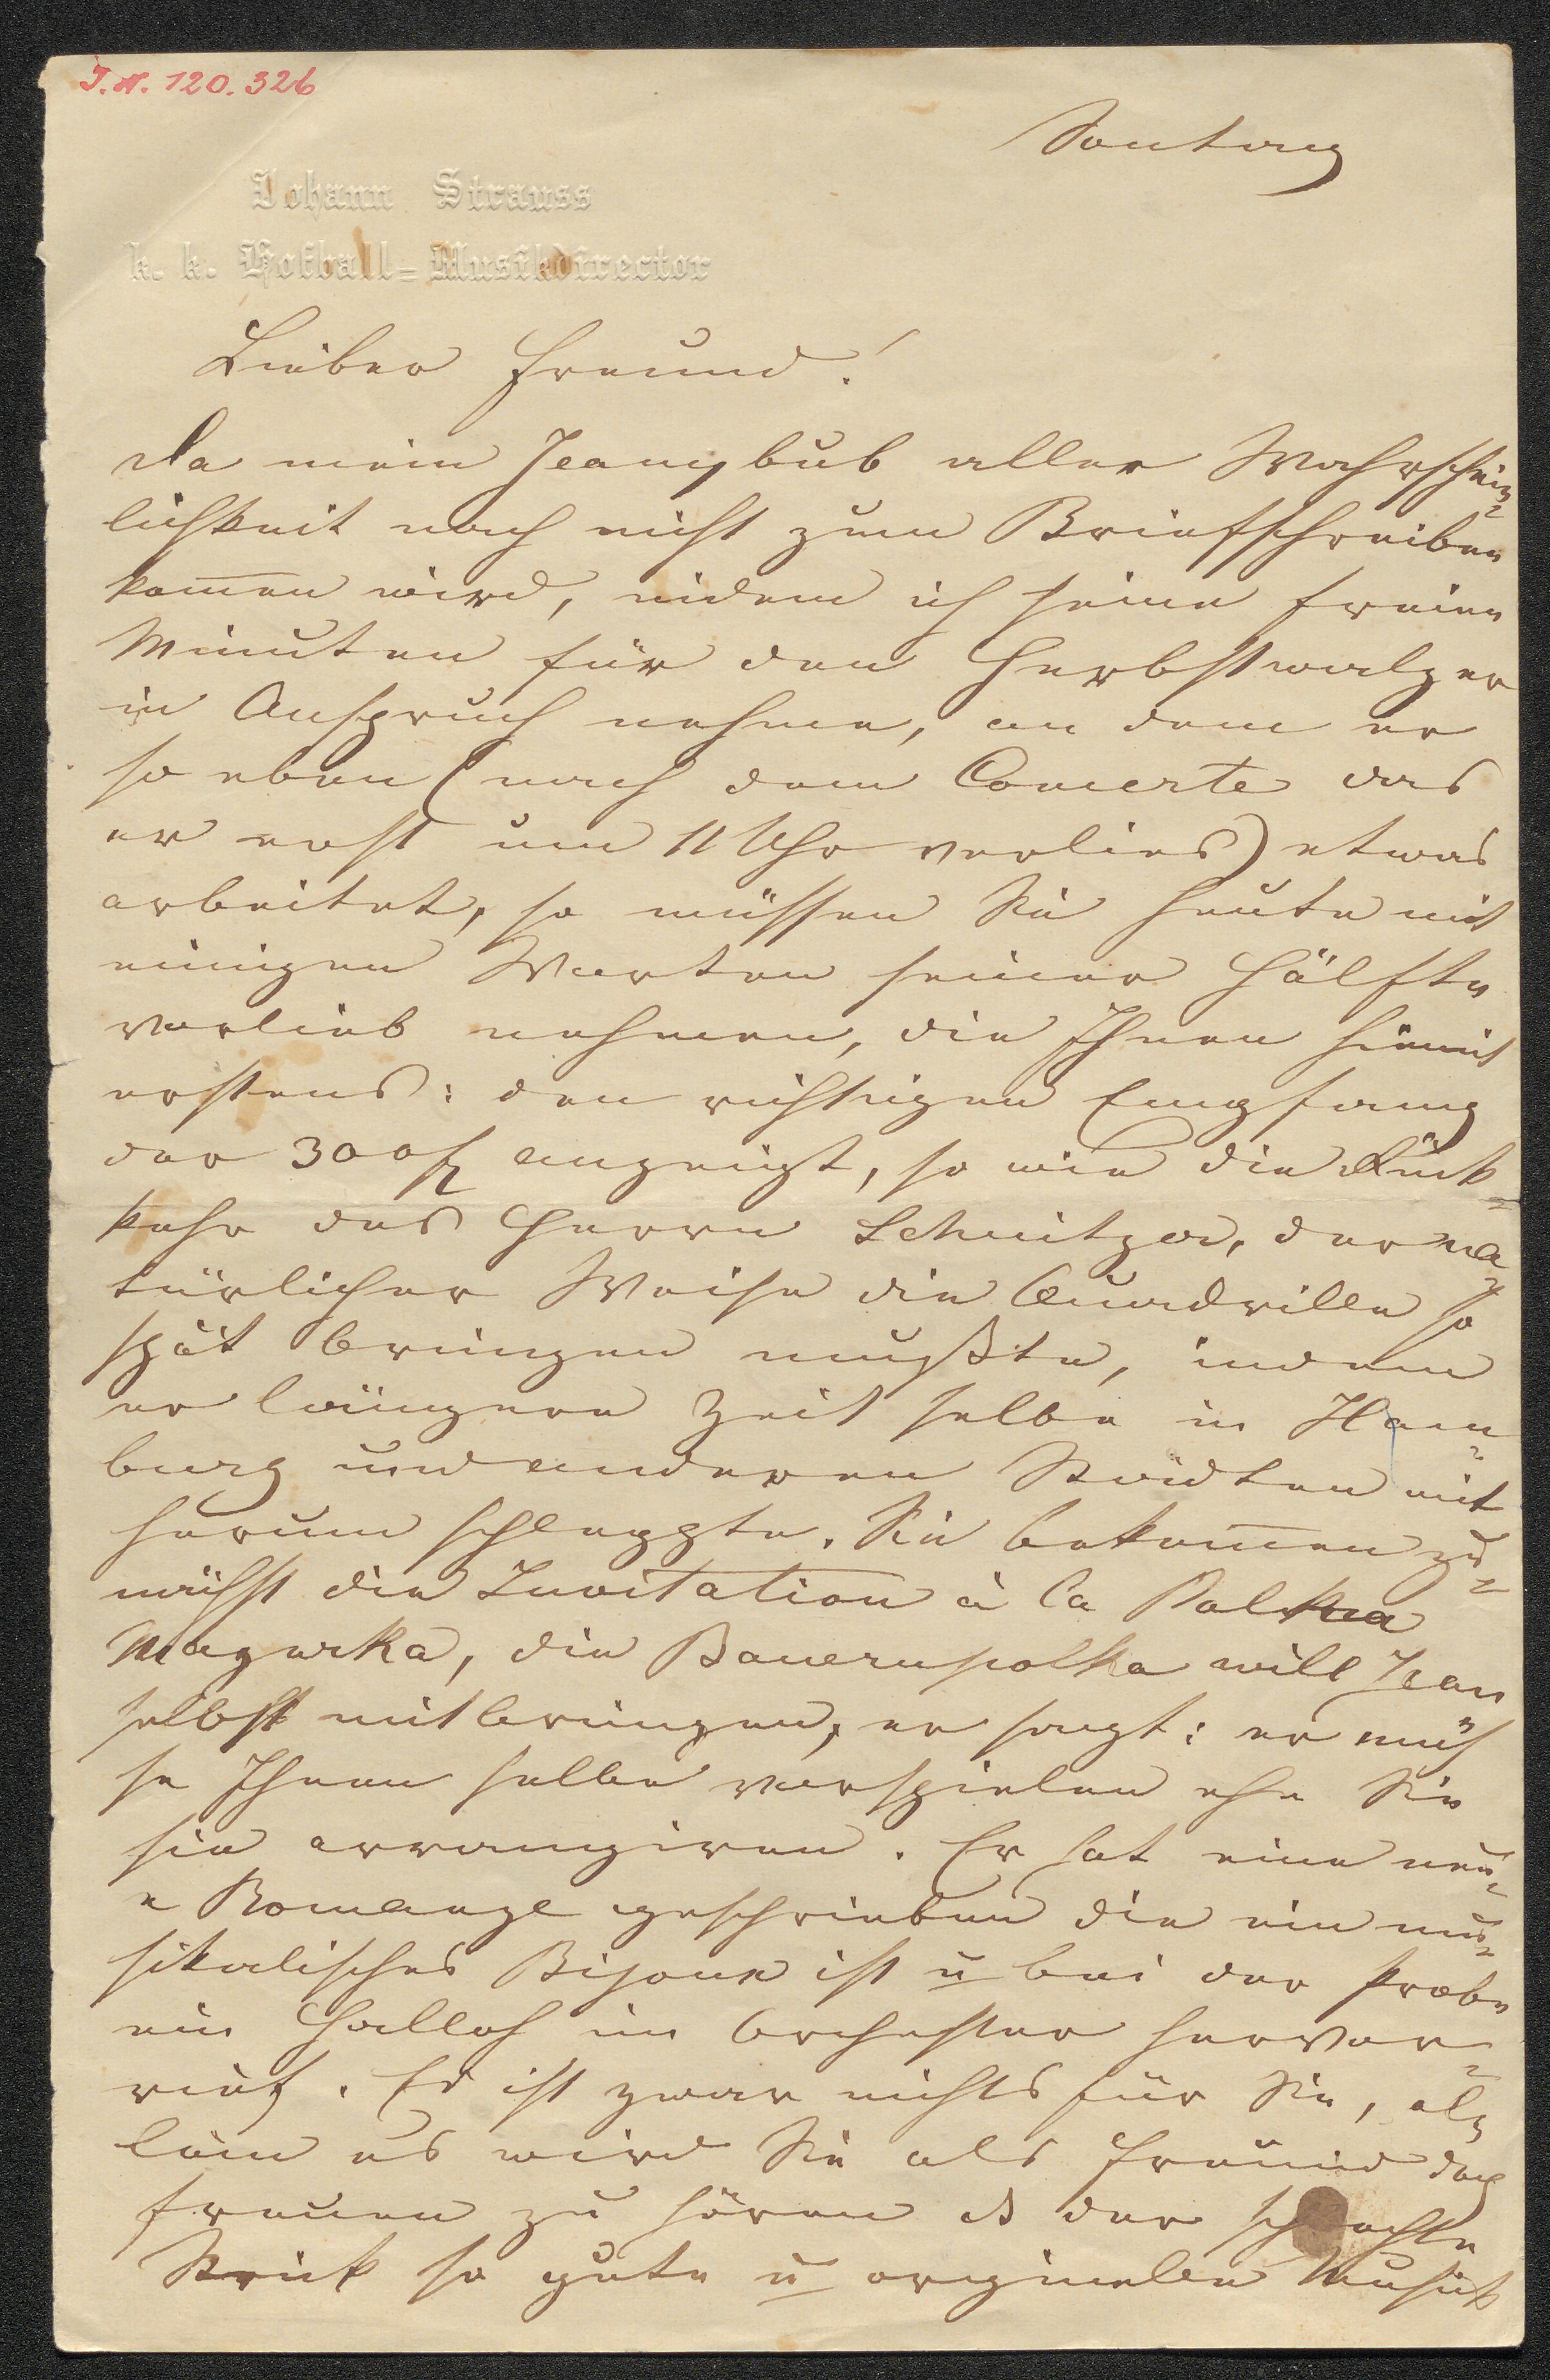 I. N. 120.326
Sontag
Johann Strauss
k. k. Hofball=Musikdirector
Lieber Freund!
Da mein Jeanybub aller Wahrschein=
lichkeit nach nicht zum Briefschreiben
kom̄en wird, indem ich seine freien
Minuten für den Herbstwalzer
in Anspruch nehme, an dem er
so eben (nach dem Concerte das
er erst um 11 Uhr verlies) etwas
arbeitet, so müssen Sie heute mit
einigen Worten seiner Hälfte
vorlieb nehmen, die Ihnen hiemit
erstens: den richtigen Empfang
der 300 f anzeigt, so wie die Rück=
kehr des Herrn Schnitzer, der na=
türlicher Weise die Quadrille so
spät bringen mußte, indem
er längere Zeit selbe in Ham=
burg und anderen Städten mit
herum schleppte. Sie bekom̄en zu=
nächst die Invitation à la Polka
Mazurka, die Bauernpolka will Jean
selbst mitbringen, er sagt: er müs
se Ihnen selbe vorspielen ehe Sie
sie arrangiren. Er hat eine neu=
e Romanze geschrieben die ein mu=
sikalisches Bijoux ist u bei der Probe
ein Halloh im Orchester hervor=
rief. Es ist zwar nichts für Sie, al=
lein es wird Sie als Freund doch
freuen zu hören ds der schlechte
Strick so gute u originelle Musik